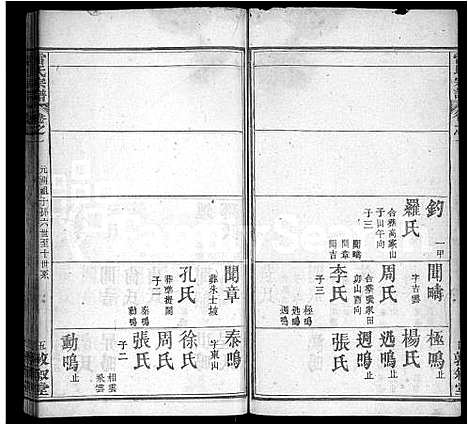 鈞
一甲
羅氏
合葬高家山
子山午向
子三
聞疇
聞章
聞吉
聞疇
字吉雲
周氏
合葬張家田
卯山酉向
李氏
子三
極鳴
迅鳴
週鳴
極鳴 止
楊氏
迅鳴 止
週鳴 止
張氏
聞章
葬朱士坡
孔氏
子二
泰鳴
動鳴
泰鳴
字東山
徐氏
周氏
張氏
子二
相雲
動鳴 止
雷氏宗譜
卷之一
五
敦敘堂